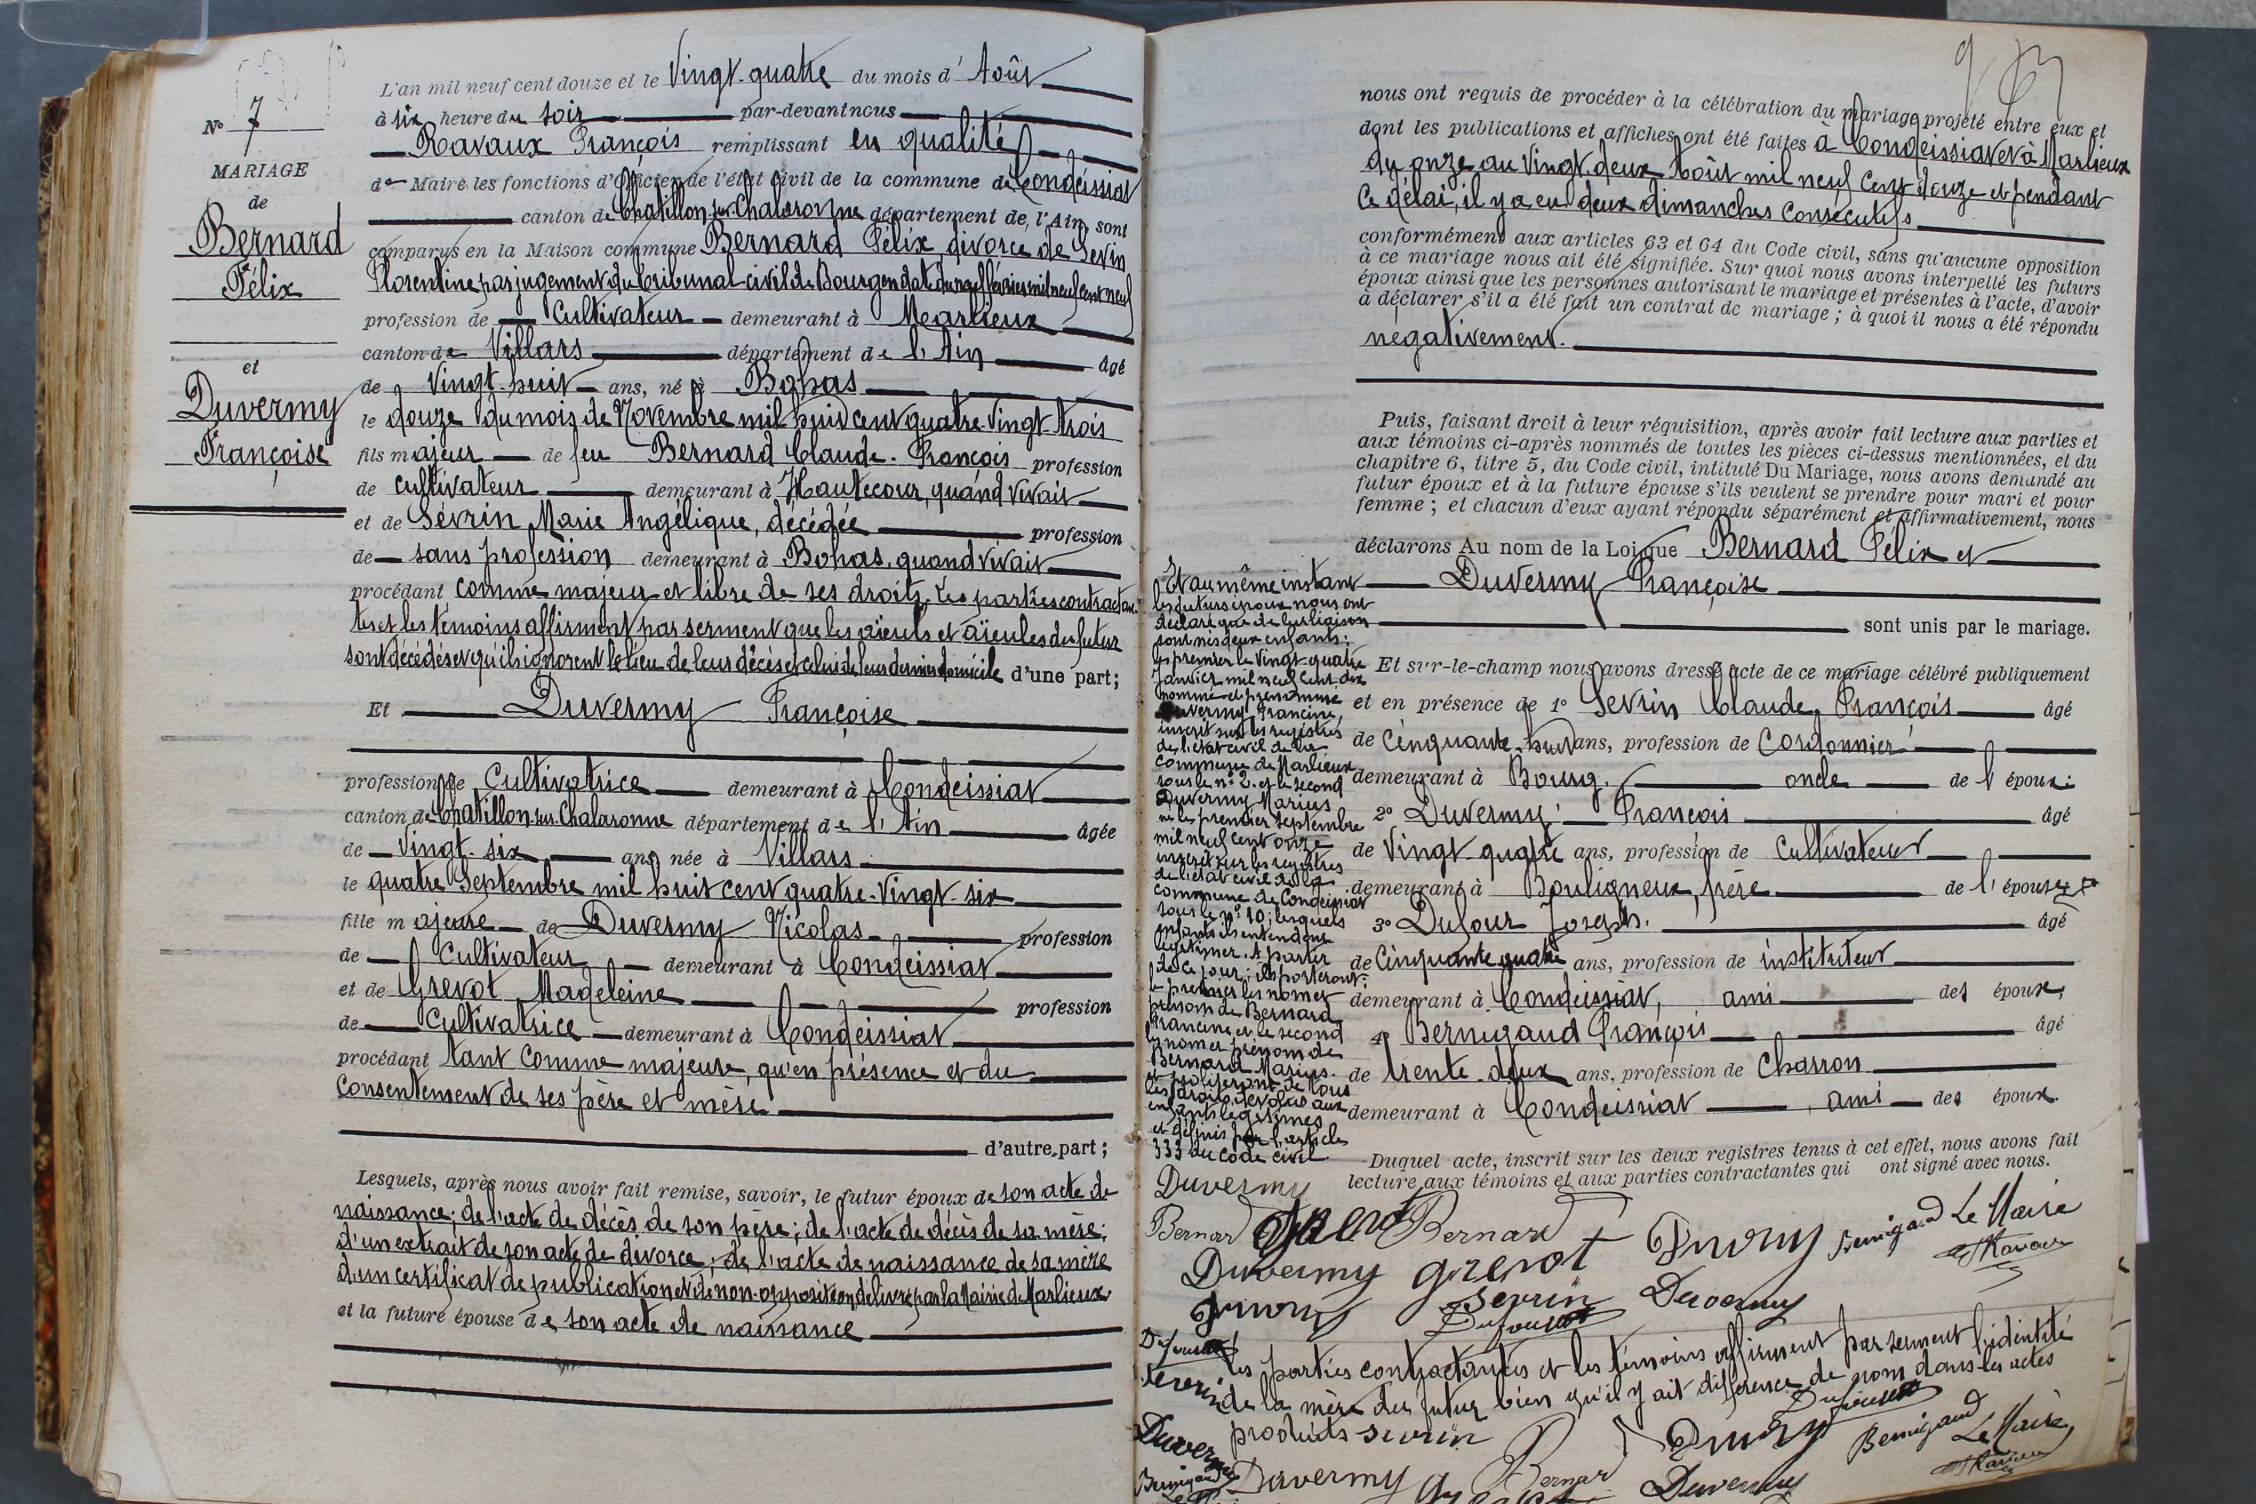 Nº 7
MARIAGE
de
Bernard
Félix
et
Duvermy
Françoise
L'an mil neuf cent douze et le Vingt-quatre du mois d' Août
à six heure du soir par-devant nous
Ravaux François remplissant en qualité
de Maire les fonctions d'Officier de l'état civil de la commune de Condeissiat
canton de Chatillon-sur-Chalaronne département de l'Ain, sont
comparus en la Maison commune Bernard Félix, divorcé de Sevin
Florentine par jugement du tribunal civil de Bourg en date du onze février mil neuf cent neuf
profession de Cultivateur demeurant à Marlieux
canton de Villars département de l'Ain âgé
de Vingt-huit ans, né à Bohas
le douze du mois de Novembre mil huit cent quatre-Vingt-trois
fils majeur de feu Bernard Claude-François profession
de cultivateur demeurant à Hautecour, quand vivait
et de Sévrin Marie Angélique, décédée profession
de sans profession demeurant à Bohas, quand vivait
procédant comme majeur et libre de ses droits, Les parties contractan-
tes et les témoins affirment par serment que les aïeuls et aïeules du futur
sont décédés et qu'ils ignorent le lieu de leurs décès et celui de leurs derniers domicile d'une part;
Et Duvermy Françoise
profession de Cultivatrice demeurant à Condeissiat
canton de Chatillon-sur-Chalaronne département de l'Ain âgée
de Vingt-six ans, née à Villars
le quatre Septembre mil huit cent quatre-Vingt-six
fille majeure de Duvermy Nicolas profession
de Cultivateur demeurant à Condeissiat
et de Grevot Madeleine profession
de Cultivatrice demeurant à Condeissiat
procédant tant comme majeure, qu'en présence et du
Consentement de ses père et mère
d'autre part;
Lesquels, après nous avoir fait remise, savoir, le futur époux de son acte de
naissance; de l'acte de décès de son père; de l'acte de décès de sa mère;
d'un extrait de son acte de divorce; de l'acte de naissance de sa mère
d'un certificat de publication et de non-opposition, délivré par la Mairie de Marlieux
et la future épouse de son acte de naissance
nous ont requis de procéder à la célébration du mariage projeté entre eux et
dont les publications et affiches ont été faites à Condeissiat et à Marlieux
du onze au Vingt-deux Août mil neuf cent douze et pendant
ce délai, il y a eu deux dimanches consécutifs
conformément aux articles 63 et 64 du Code civil, sans qu'aucune opposition
à ce mariage nous ait été signifiée. Sur quoi nous avons interpellé les futurs
époux ainsi que les personnes autorisant le mariage et présentes à l'acte, d'avoir
à déclarer s'il a été fait un contrat de mariage; à quoi il nous a été répondu
négativement.
Puis, faisant droit à leur réquisition, après avoir fait lecture aux parties et
aux témoins ci-après nommés de toutes les pièces ci-dessus mentionnées, et du
chapitre 6, titre 5, du Code civil, intitulé Du Mariage, nous avons demandé au
futur époux et à la future épouse s'ils veulent se prendre pour mari et pour
femme; et chacun d'eux ayant répondu séparément et affirmativement, nous
déclarons Au nom de la Loi que Bernard Félix et
Duvermy Françoise
sont unis par le mariage.
Et sur-le-champ nous avons dressé acte de ce mariage célébré publiquement
et en présence de 1º Sevrin Claude, François âgé
de Cinquante-huit ans, profession de Cordonnier
demeurant à Bourg. oncle de l'époux.
2º Duvermy François âgé
de Vingt-quatre ans, profession de Cultivateur
demeurant à Bouligneux, frère de l'épouse
3º Dufour Joseph. âgé
de Cinquante quatre ans, profession de instituteur
demeurant à Condeissiat, ami des époux,
4º Bernigaud François âgé
de trente-deux ans, profession de Charron
demeurant à Condeissiat, ami des époux.
Duquel acte, inscrit sur les deux registres tenus à cet effet, nous avons fait
lecture aux témoins et aux parties contractantes qui ont signé avec nous.
Et au même instant
les futurs époux nous ont
déclaré que de leur liaison
sont nés deux enfants:
le premier le Vingt-quatre
Janvier mil neuf cent dix
nommé et prénommé
Duvermy Francine,
inscrit sur les registres
de l'état civil de la
commune de Marlieux
sous le nº 2. et le second
Duvermy Marius
né le premier Septembre
mil neuf cent onze
inscrit sur les registres
de l'état civil de la
commune de Condeissiat
sous le nº 10; lesquels
enfants ils entendent
légitimer. A partir
de ce jour, ils porteront:
le premier les nom et
prénom de Bernard
Francine et le second
les nom et prénom de
Bernard Marius.
et profiteront de tous
les droits dévolus aux
enfants légitimes
et définis par l'article
333 du Code civil
Duvermy
Bernard Bernard Bernigaud Le Maire
Duvermy Grevot
Sevrin Duvermy
Dufour
les parties contractantes et les témoins affirment par serment l'identité
de la mère du futur bien qu'il y ait différence de nom dans les actes
produits Sevrin
Bernigaud Le Maire
Duvermy Bernard Duvermy